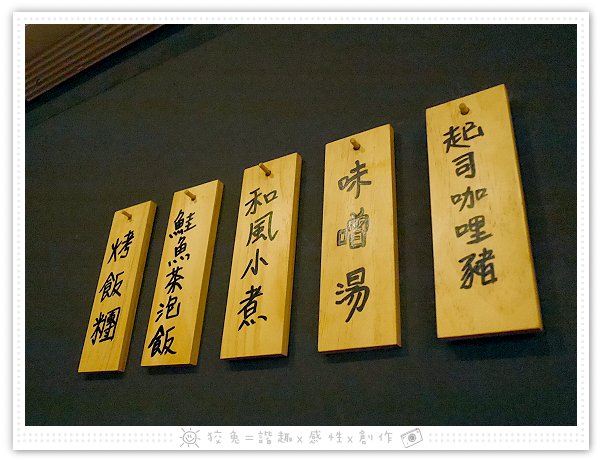 起司咖哩豬
味噌湯
和風小煮
鮭魚茶泡飯
烤飯糰
狡兔=諧趣x感性x創作